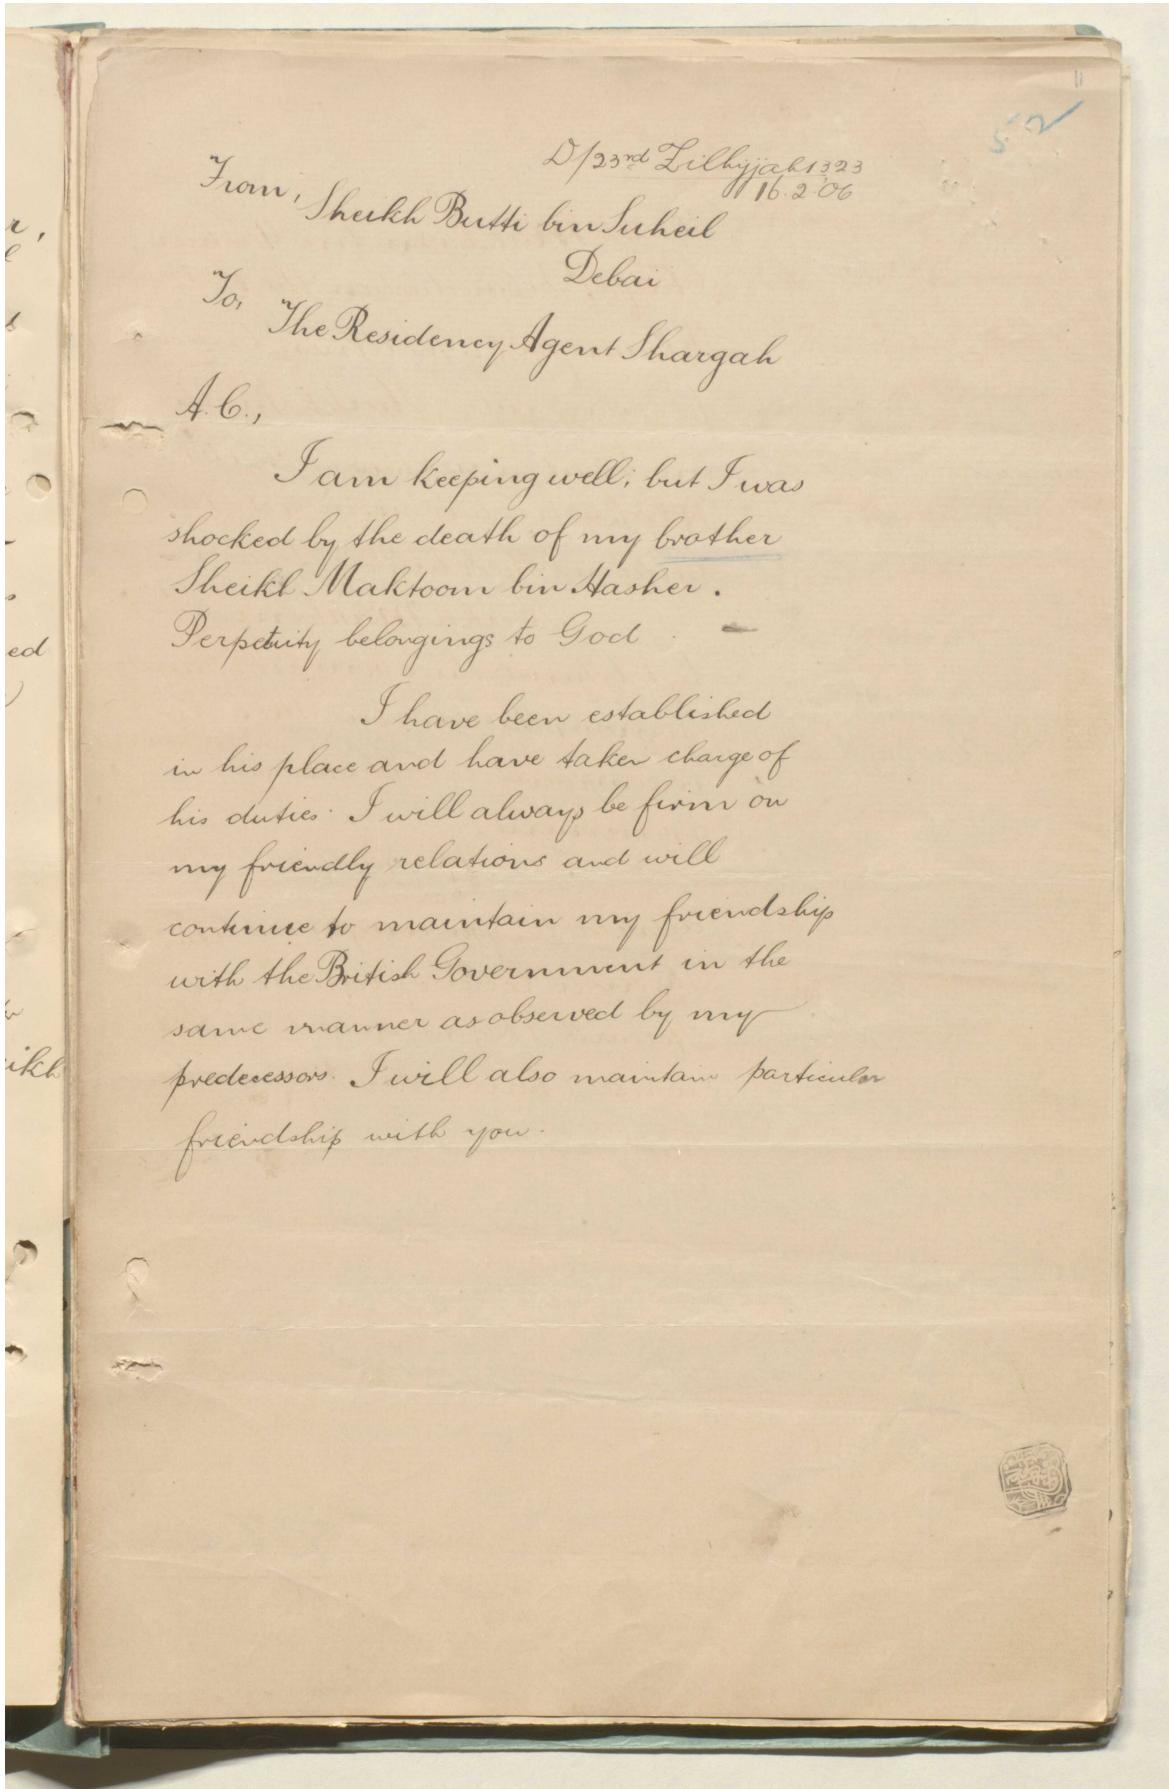 11
52
D/23rd Zilhyjah 1323
16.2.'06
From,
Sheikh Butti bin Suheil
Debai
To,
The Residency Agent Shargah
A.C.,
I am keeping well; but I was
shocked by the death of my brother
Sheikh Maktoom bin Hasher.
Perpetuity belongings to God
I have been established
in his place and have taken charge of
his duties. I will always be firm on
my friendly relations and will
continue to maintain my friendship
with the British Government in the
same manner as observed by my
predecessors. I will also maintain particular
friendship with you.